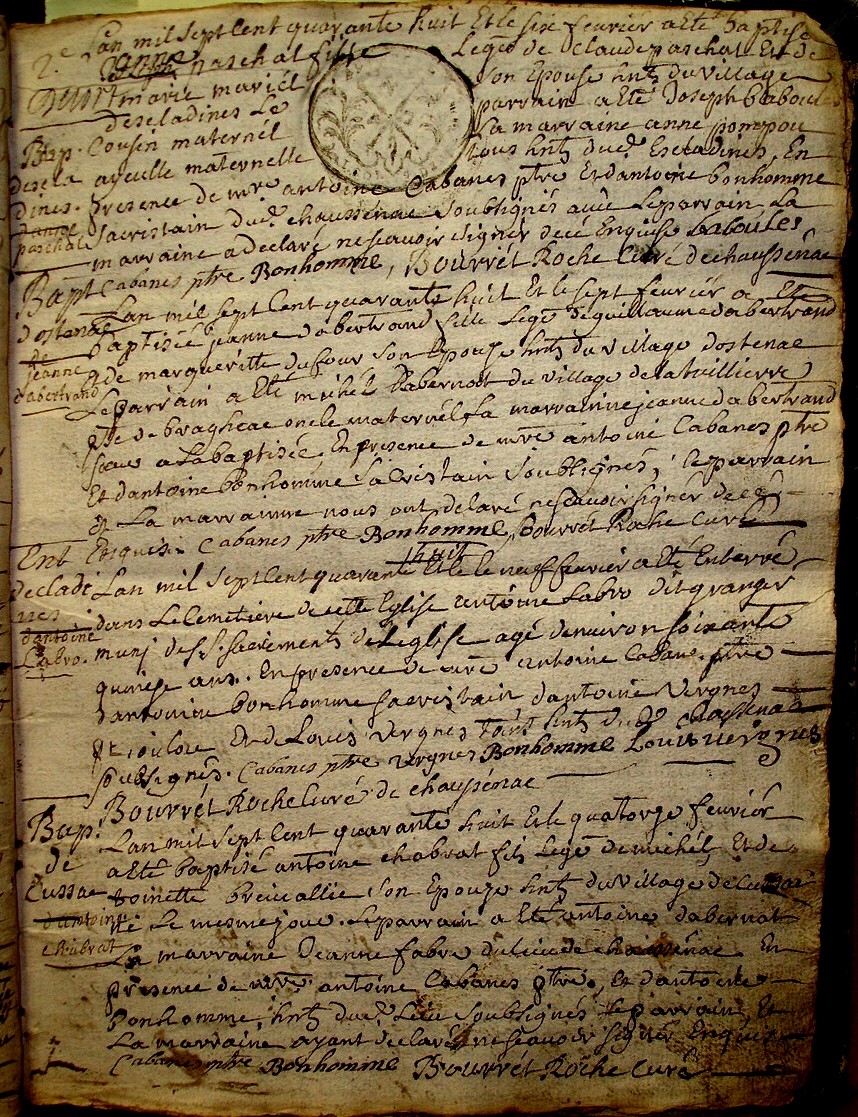 2.e Lan mil sept Cent quarante huit Et le six feuvrier a Eté baptisé
Anne paschal fille Legê de Claude paschal Et de
marie mariél son Epouse hnts du village
descladines Le parrain a eté Joseph baboules
Bap. Cousin maternél La marraine anne pompou
descla ayeulle maternelle tous hnts dud. Escladines, En
dines. presence de mre antoine Cabanes ptre Et dantoine bonhomme
danne Sacristain dud. chaussenac soubsignés avec Le parrain La
paschal marraine a declaré ne scavoir signer de ce Enquise baboules
Cabanes ptre Bonhomme, Bourrét Roche Curé de chaussenac
Bapt Lan mil sept Cent quarante huit Et le sept feuvriér a Eté
dostenac baptisée jeanne dabertrand fille Legê de guillaume dabertrand
de jeanne & de margueritte dufour son Epouse hnts du village dostenac
dabertrand Le parrain a Eté michél dabernat du village de latuillierre
psse de bragheac oncle maternél La marrainne jeanne dabertrand
sœur a La baptisée, En presence de mre antoine Cabanes ptre
Et dantoine bonhomme sacristain soubsignés, le parrain
et La marrainne nous ont declaré ne scavoir signér de ce
Enquis. Cabanes ptre Bonhomme, Bourrét Roche Curé
Ent huit
decladi Lan mil sept Cent quarante Et le neuf feuvrier a Eté Enterré
nes dans Le Cemetiére de cette Eglise antoine Labro dit granger
dantoine munj des St. sacrements de Leglise agé denviron soixante
Labro. quinse ans. En presence de mre antoine Caban. ptre
dantoine bonhomme sacristain dantoine Vergnes
Et de Louis Vergnes tous hnts dud. chaussenac
soubsignés. Cabanes ptre vergnes Bonhomme Louis vergnes
Bourrét Roche Curé de chaussénac
Bap. Lan mil sept Cent quarante huit Et le quatorze feuvriér
de a Eté baptisé antoine chabrat fils Legê de michél, Et de
Cussac toinette son Epouze hnts du village de Cussac
dantoine né Le mesme jour. Le parrain a Eté antoine dabernat
chabrat La marraine Jeanne fabre du lieu de chaussénac. En
présence de mre antoine Cabanes ptre, Et dantoine
Bonhomme, hnts dud. Lieu soubsignés Le parrain, Et
La marraine ayant declaré ne scavoir signér Enquis
Cabanes ptre Bonhomme Bourrét Roche Curé